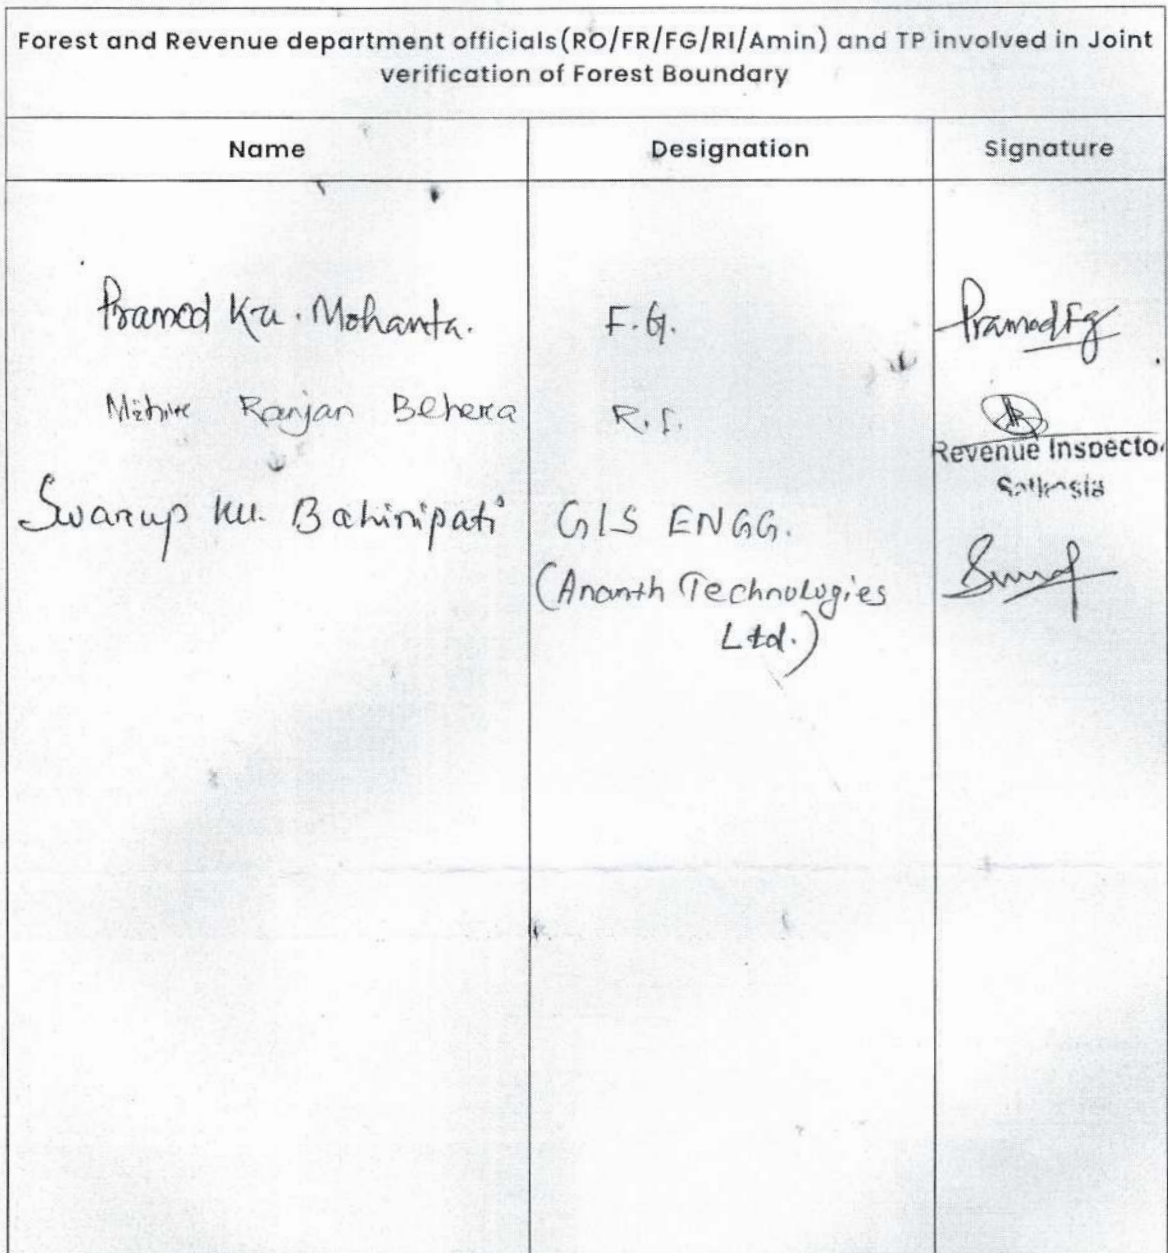 Forest and Revenue department officials(RO/FR/FG/RI/Amin) and TP involved in Joint
verification of Forest Boundary
Name Designation Signature
Pramod Ku. Mohanta. F.G. Pramod Fg
Ranjan Behera R.I.
Revenue Inspecto
Swarup Ku. Bahinipati GIS ENGG.
(Ananth Technologies
Ltd.)